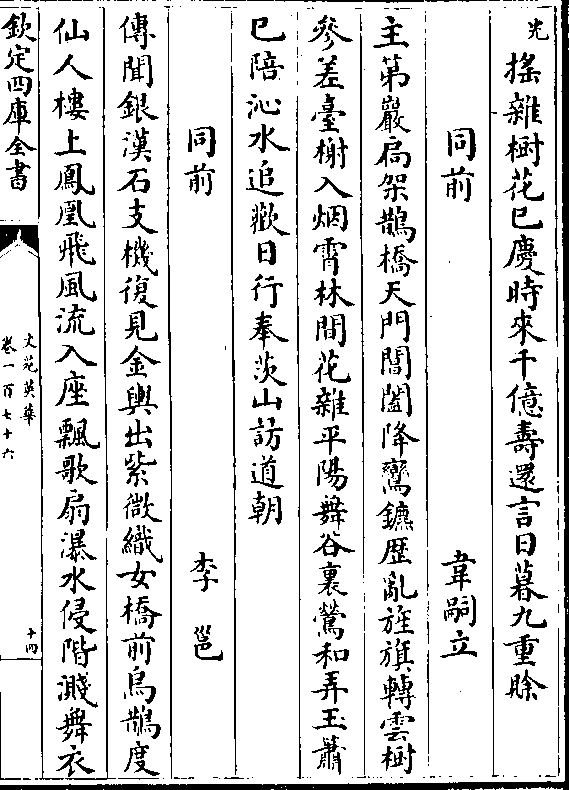 光
搖雜樹花已慶時來千億壽還言日暮九重賖
同前 韋嗣立
主第巖扃架鵲橋天門閶闔降鸞鑣歴亂旌旗轉雲樹
參差臺榭入烟霄林間花雜平陽舞谷裏鶯和弄玉簫
已陪沁水追歡日行奉茨山訪道朝
同前 李邕
傳聞銀漢石支機復見金輿出紫微織女橋前烏鵲度
仙人樓上鳳凰飛風流入座飄歌扇瀑水侵階濺舞衣
欽定四庫全書
文苑英華
卷一百七十六
十四